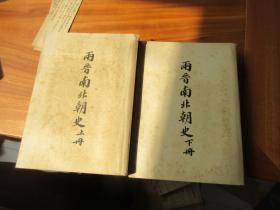 兩晉南北朝史上冊
兩晉南北朝史下冊